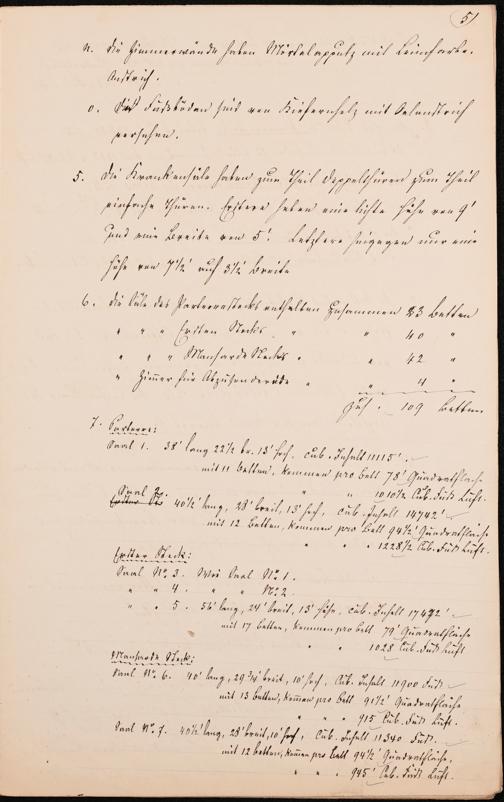 51
n. Die Zimmerwände haben Mörtelapputz mit Leimfarbe-
Anstrich.
o. Die Fußböden sind von Kiefernholz mit Oelanstrich
versehen.
5. Die Krankensäle haben zum Theil Doppelthüren zum Theil
einfache Thüren. Erstere haben eine lichte Höhe von 9'
und eine Breite von 5'. Letztere hingegen nur eine
Höhe von 7½' auf 3½' Breite
6. Die Säle des Parterrestocks enthalten zusammen 23 Betten
" " " Ersten Stocks " " 40 "
" " " Mansarde Stocks " " 42 "
" Zimmer für Abzusondernde " " 4 "
Zus. 109 Betten.
7. Parterre:
Saal 1. 38' lang 22½ br. 13' hoch. Cub. Inhalt 11115'.
mit 11 Betten, kommen pro Bett 78' Quadratfläche
" " 1010½ Cub. Fuß Luft.
Saal 2. 40½' lang, 28' breit, 13' hoch, Cub. Inhalt 14742'
mit 12 Betten, kommen pro Bett 94½' Quadratfläche
" " " 1228½ Cub. Fuß Luft.
Erster Stock:
Saal No. 3. Wie Saal No. 1.
" " 4. " " No. 2.
" " 5. 56' lang, 24' breit, 13' hoch, Cub. Inhalt 17472'
mit 17 Betten, kommen pro Bett 79' Quadratfläche
" " 1028 Cub. Fuß Luft
Mansarde Stock:
Saal No. 6. 40' lang, 29¾' breit, 10' hoch, Cub. Inhalt 11900 Fuß
mit 13 Betten, kommen pro Bett 91½' Quadratfläche
" " " 915 Cub. Fuß Luft.
Saal No. 7. 40½' lang, 28' breit, 10' hoch, Cub. Inhalt 11340 Fuß.
mit 12 Betten, kommen pro Bett 94½' Quadratfläche,
" " 945' Cub. Fuß Luft.